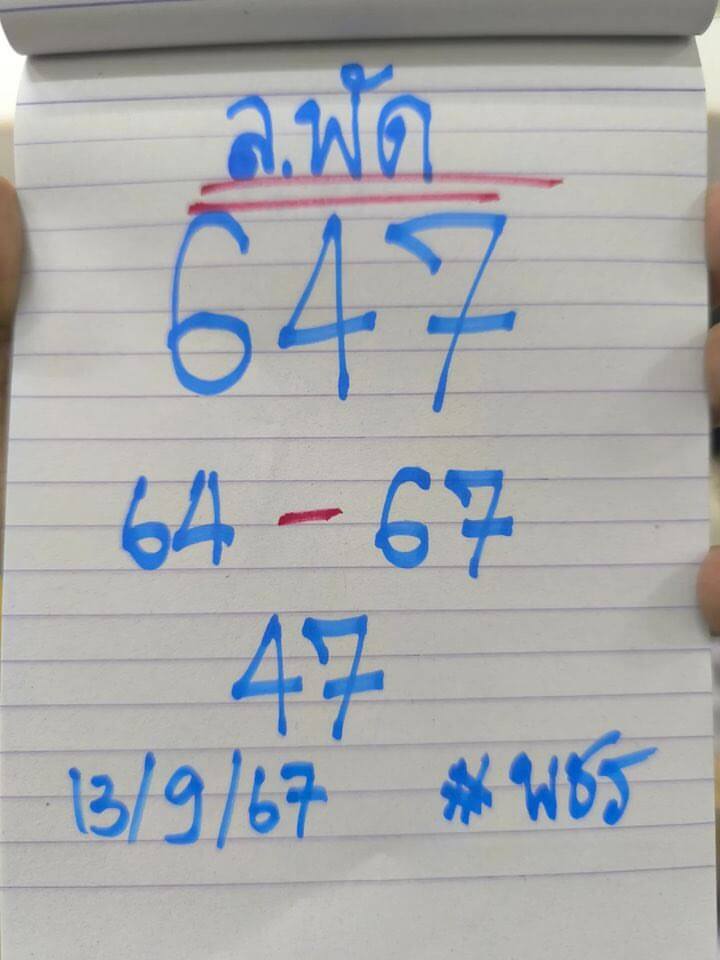 ล.พัด
647
64 - 67
47
13/9/67 #พชร